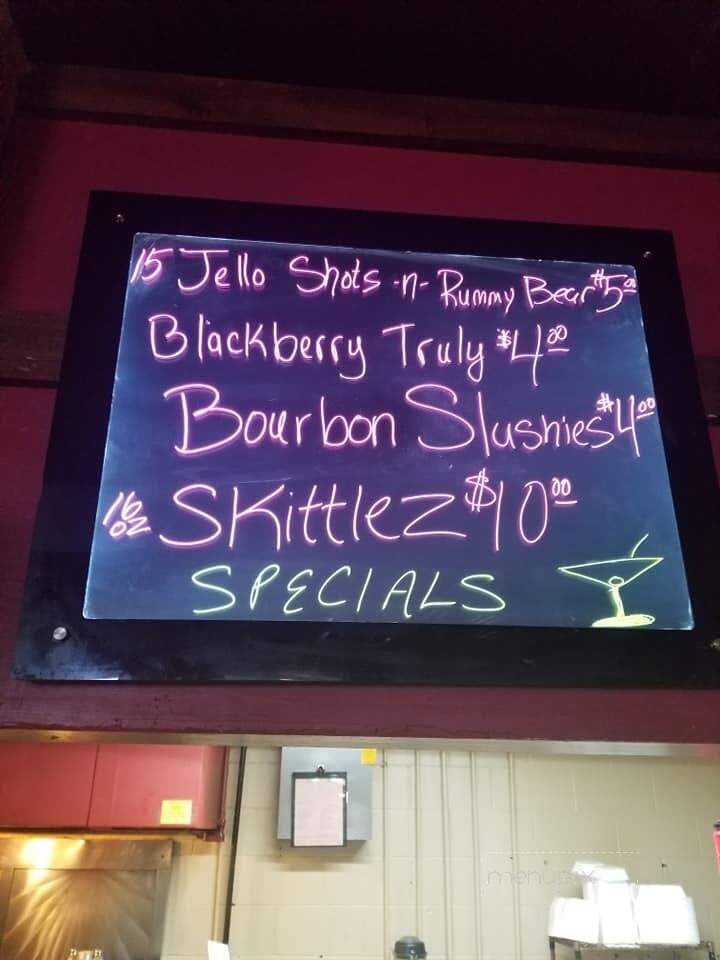 15 Jello Shots -n- Rummy Bear $5.00
Blackberry Truly $4.00
Bourbon Slushies $4.00
16 oz Skittlez $10.00
SPECIALS
menupix